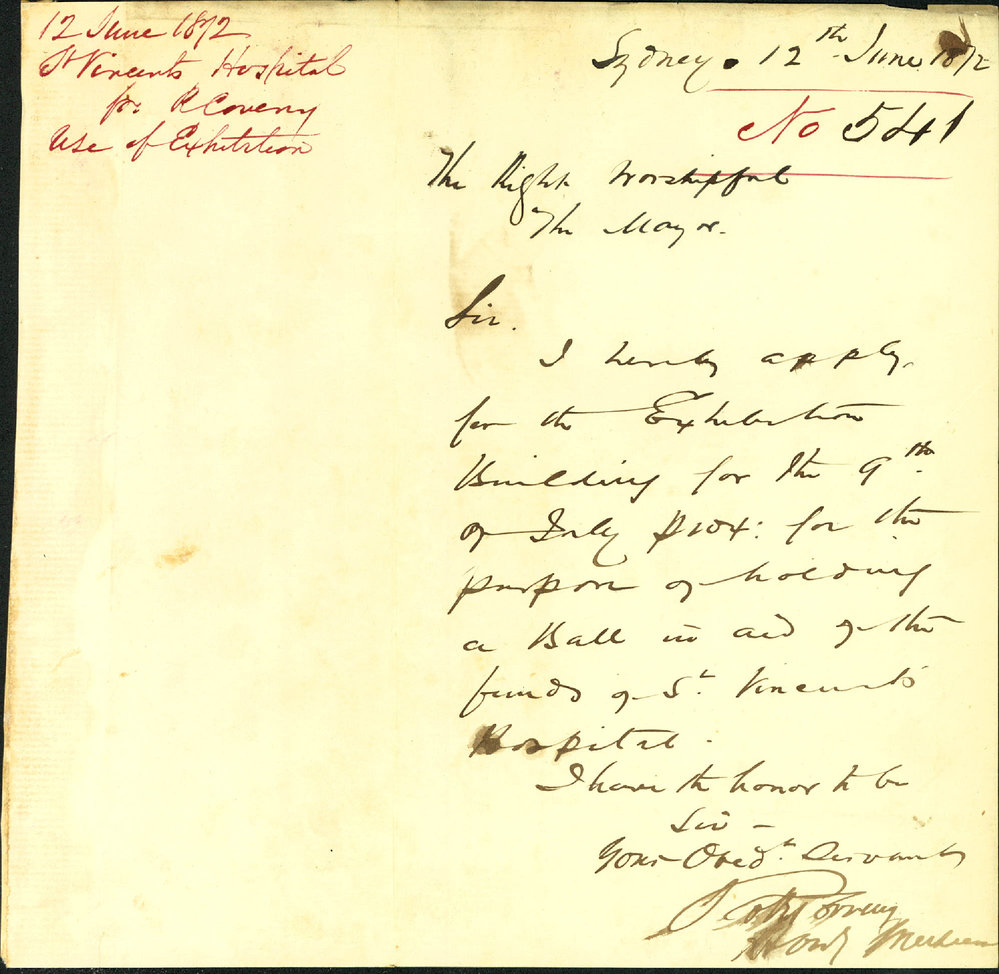 12 June 1872
St Vincents Hospital
pr R Coveny
Use of Exhibition
Sydney. 12th June 1872
No 541
The Right Worshipful
The Mayor.
Sir.
I hereby apply.
for the Exhibition
Building for the 9th
of July for the
purpose of holding
a Ball in aid of the
funds of St. Vincents
Hospital.
I have the honor to be
Sir -
Your Obedt. Servant
Robt Coveny